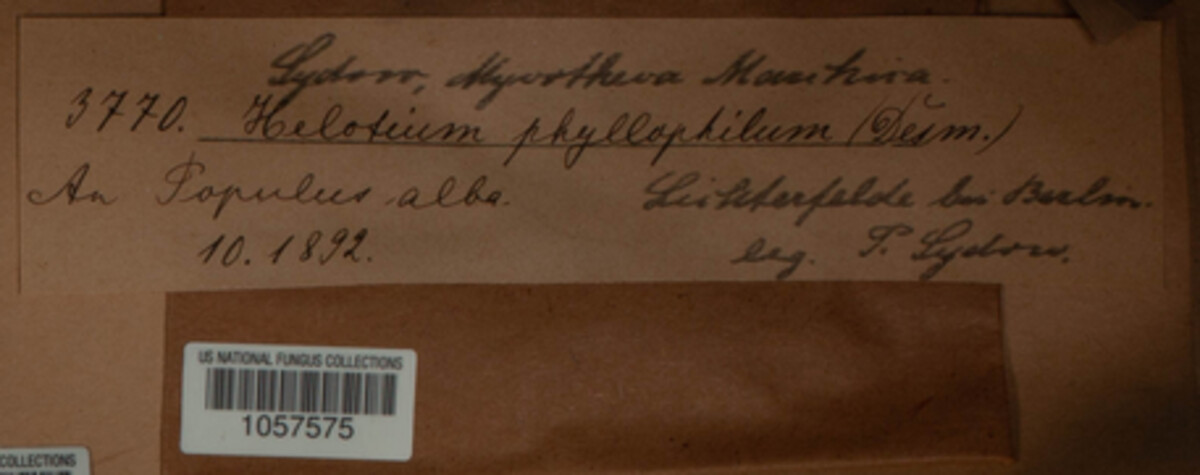 Sydow, Mycotheca Marchica.
3770. Helotium phyllophilum (Desm.)
An Populus alba. Lichterfelde bei Berlin.
10. 1892. leg. P. Sydow.
US NATIONAL FUNGUS COLLECTIONS
1057575
COLLECTIONS